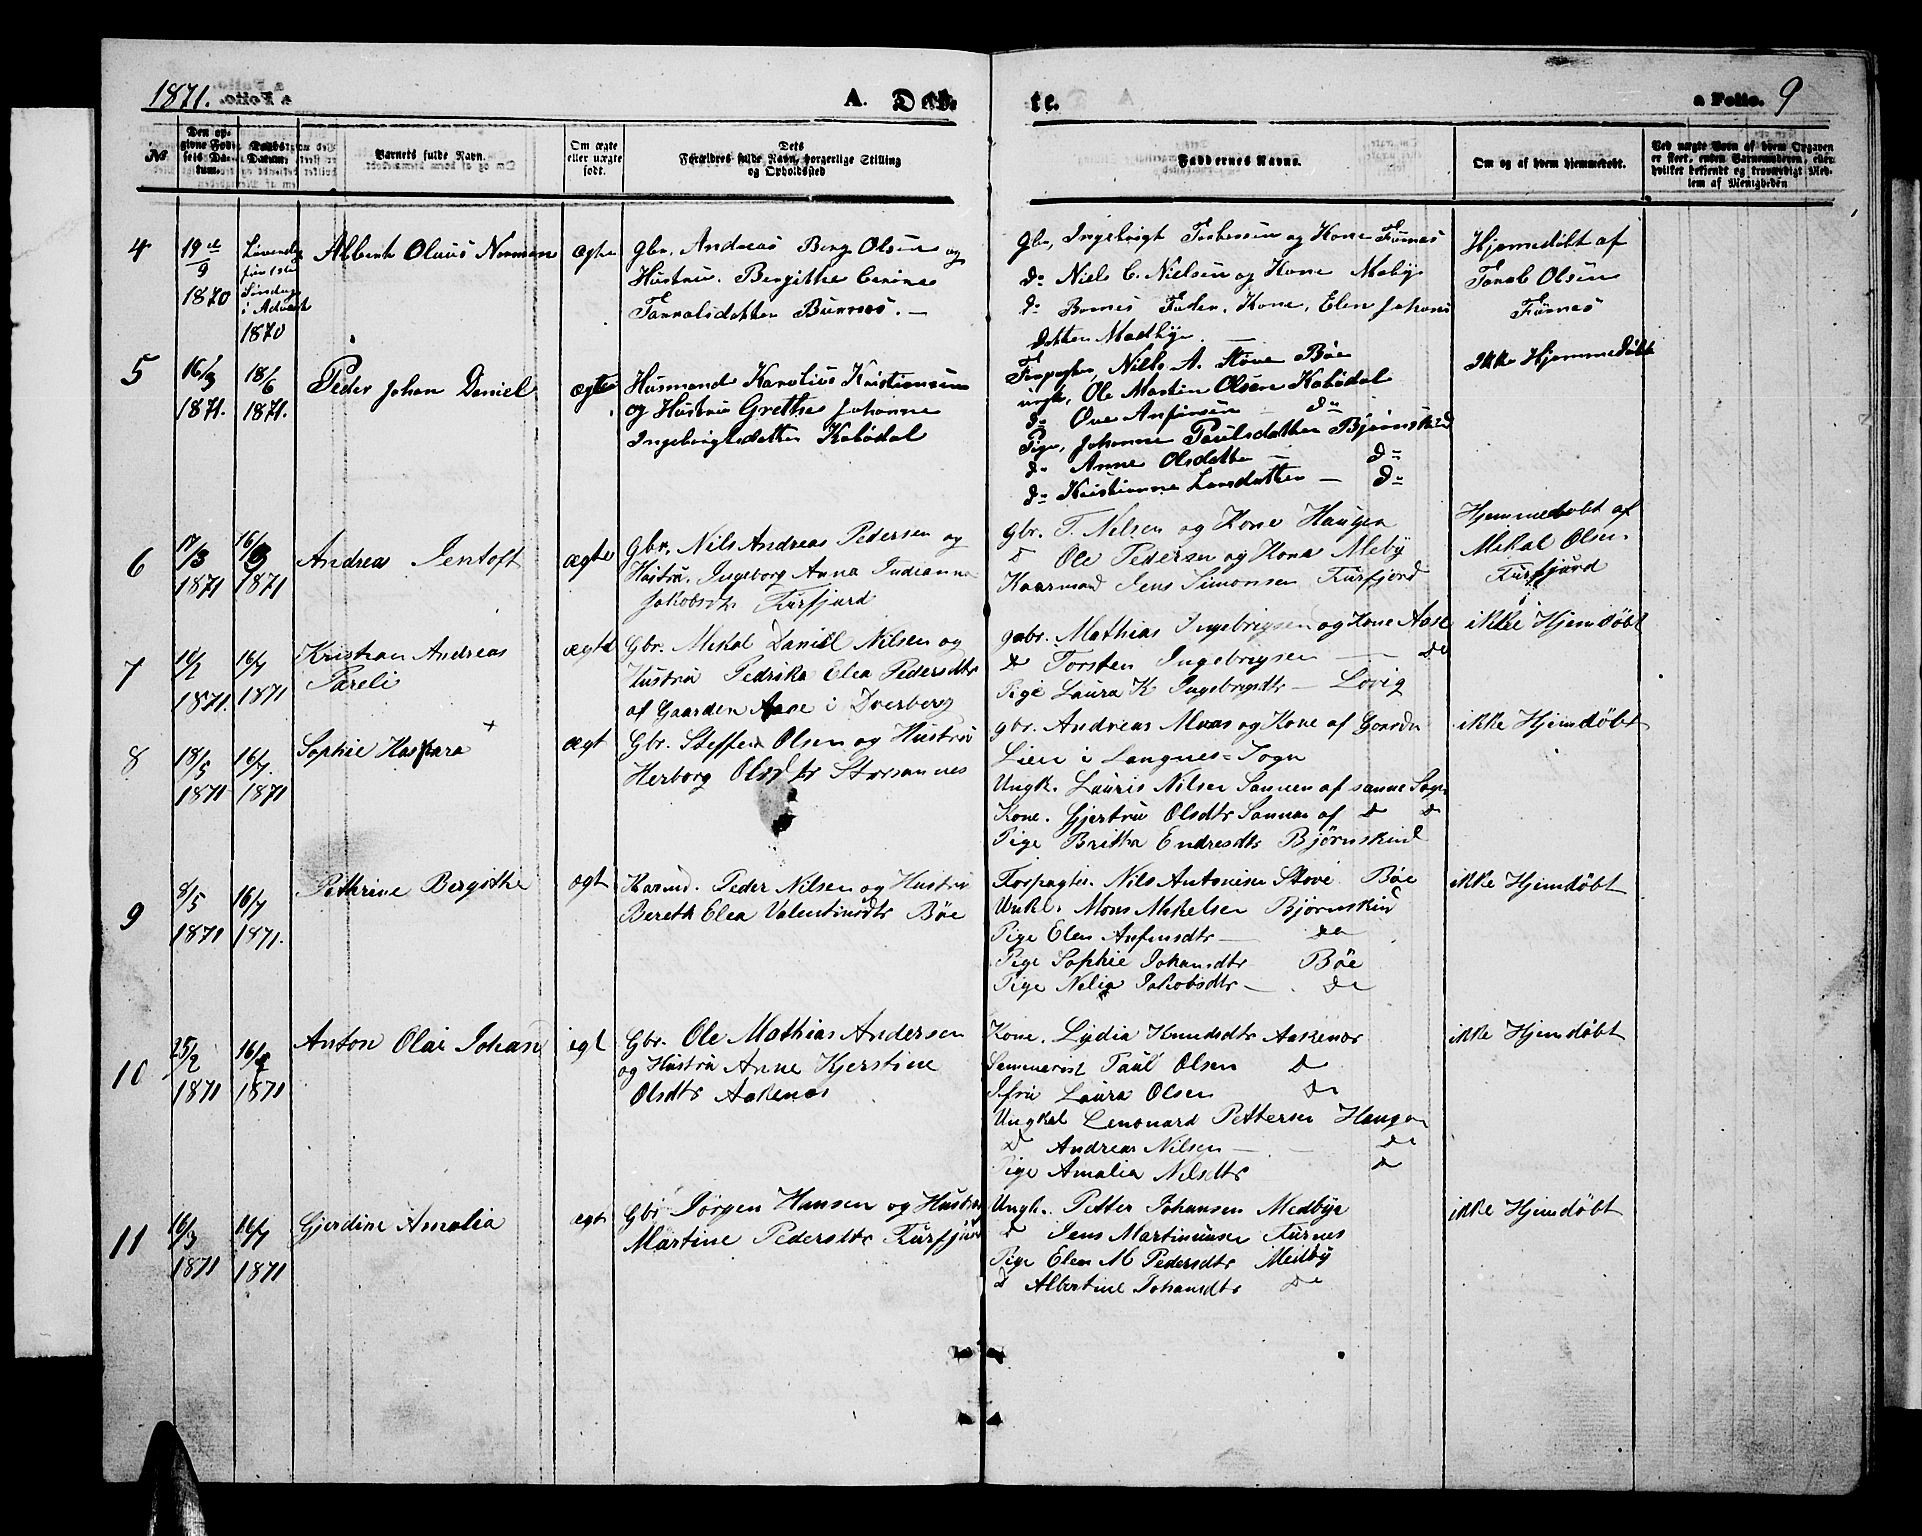 1871.
A. Døb
te.
a Folio. 9
No.
Den opgivne Fødsels Datum.
Daabs Datum.
Barnets fulde Navn.
Om ægte eller uægte født.
Dets Forældres fulde Navn, borgerlige Stilling og Opholdssted
Faddernes Navne.
Om og af hvem hjemmedøbt.
Ved uægte Børn af hvem Opgaven er skeet, enten Barnemoderen, eller hvilket bekjendt og troværdigt Medlem af Menigheden
4
19de/9 1870
Søndag i Advent 1870
Albert Olaus Norman
ægte
Gbr. Andreas Berg Olsen og
Hustru. Bergithe
Burnæs. —
Gbr, Ingebrigt og Kone Furnæs
do Niels C. Nielsen og Kone Meby
do Barnets Fader, Kone, Elen Johans
datter Madbye
Hjemmedøbt af
Olsen
Furnæs
5
16/3 1871.
18/6 1871.
Peder Johan Daniel
ægte
Husmand Karolius Kristiansen
og Hustru Grethe Johanne
Ingebrigtsdatter Kobødal
Forpagter, Niels A. Støve Bøe
ungk, Ole Martin Olsen Kobødal
do Ove Anfinsen do
Pige, Johanne Paulsdatter Bjørnskind
do Anne Olsdatter — do
do Kristianne Larsdatter — do
Ikke Hjemmedøbt
6
17/3 1871
16/ 1871
Andreas Jentoft
ægte
Gbr. Nils Andreas Pedersen og
Hustru. Ingeborg Anna Indianna
Jakobsdtr Kurfjord
Gbr. T. Nelsen og Kone Haugen
D Ole Pedersen og Kone Meby
Kaarmand Jens Simonsen Kurfjord
Hjemmedøbt af
Mekal Olsen
Kurfjord
7
1871.
16/7 1871
Kristian Andreas
Pareli
ægte
Gbr. Mekal Daniel Nilsen og
Hustru Pedrika Elea Pedersdtr
af Gaarden Aase i Dverberg
gabr. Mathias Ingebrigsen og Kone Aase
Do Torsten Ingebrigsen — Do
Pige Laura K Ingebrigsdtr — Lovig
ikke Hjemdøbt
8
18/5 1871
16/7. 1871
Sophie Haskara +
ægt
Gbr. Steffen Olsen og Hustru
Herborg Olsdtr Størsannes
gbr. Andreas Moas og Kone af Gaarden
Lien i Langnes-Sogn
Ungk. Lauris Nilsen Sannen af samme Sogn
Kone. Gjertru Olsdtr Sannas af D D
Pige Britha Endresdtr Bjørnskind
ikke Hjemdøbt
9
8/5 1871
16/7 1871.
Pethrine Bergithe
ægt
Peder Nilsen og Hustru
Bereth Elea Valentinsdtr Bøe
Forpagter. Nils Antonisen Støve Bøe
Unkl. Mons Mekelsen Bjørnskind
Pige Elen Anfinsdtr — Do
Pige Sophie Johansdtr Bøe
Pige Nelia Jakobsdtr — Do
ikke Hjemdøbt
10
25/2 1871
16/7 1871
Anton Olai Johan
igt
Gbr. Ole Mathias Andersen
og Hustru Anne Kjerstine
Olsdtr Aakenes
Kone. Lydia Knudsdtr Aakenes
Semenarist Paul Olsen D
Jfru Laura Olsen Do
Ungkal Lenonard Pettersen Haugen
D Andreas Nilsen — Do
Pige Amalia Nilsdtr D
ikke Hjemdøbt
11
16/3 1871
16/7 1871
Gjerdine Amalia
ægt
Gbr Jørgen Hansen og Hustru
Martine Pedersdtr Kurfjord
Ungk. Petter Johansen Medbye
D Jens Martinusen Furnes
Pige Elen M Pedersdtr Medby
D Albertine Johansdtr Do
ikke Hjemdøbt